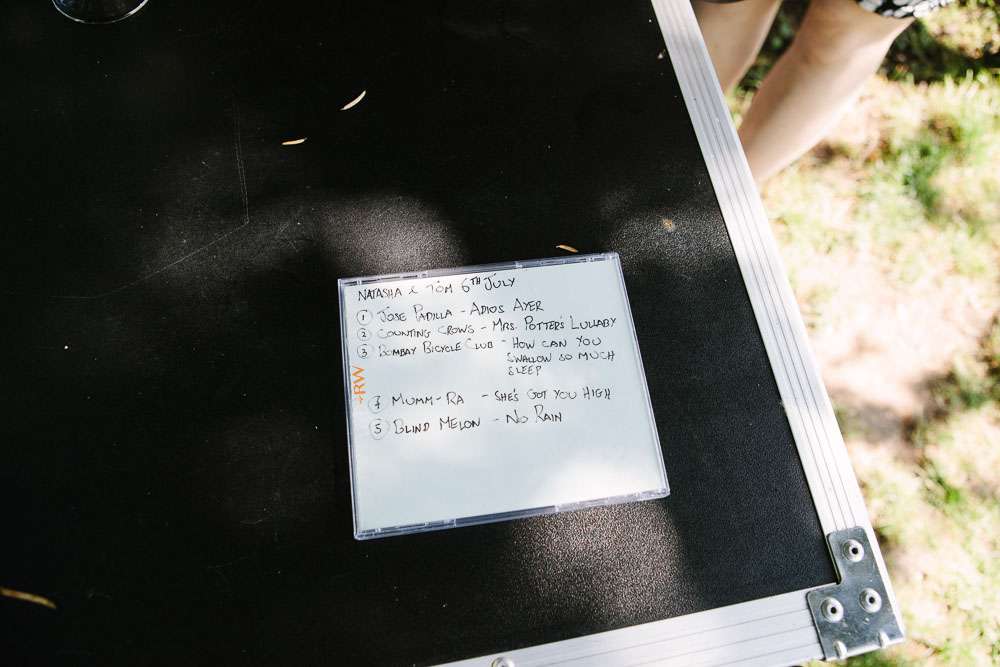 NATASHA & TOM 6TH JULY
① JOSE PADILLA - ADIOS AYER
② COUNTING CROWS - MRS. POTTERS' LULLABY
③ BOMBAY BICYCLE CLUB - HOW CAN YOU
SWALLOW SO MUCH
SLEEP
+RW
④ MUMM-RA - SHE'S GOT YOU HIGH
⑤ BLIND MELON - NO RAIN